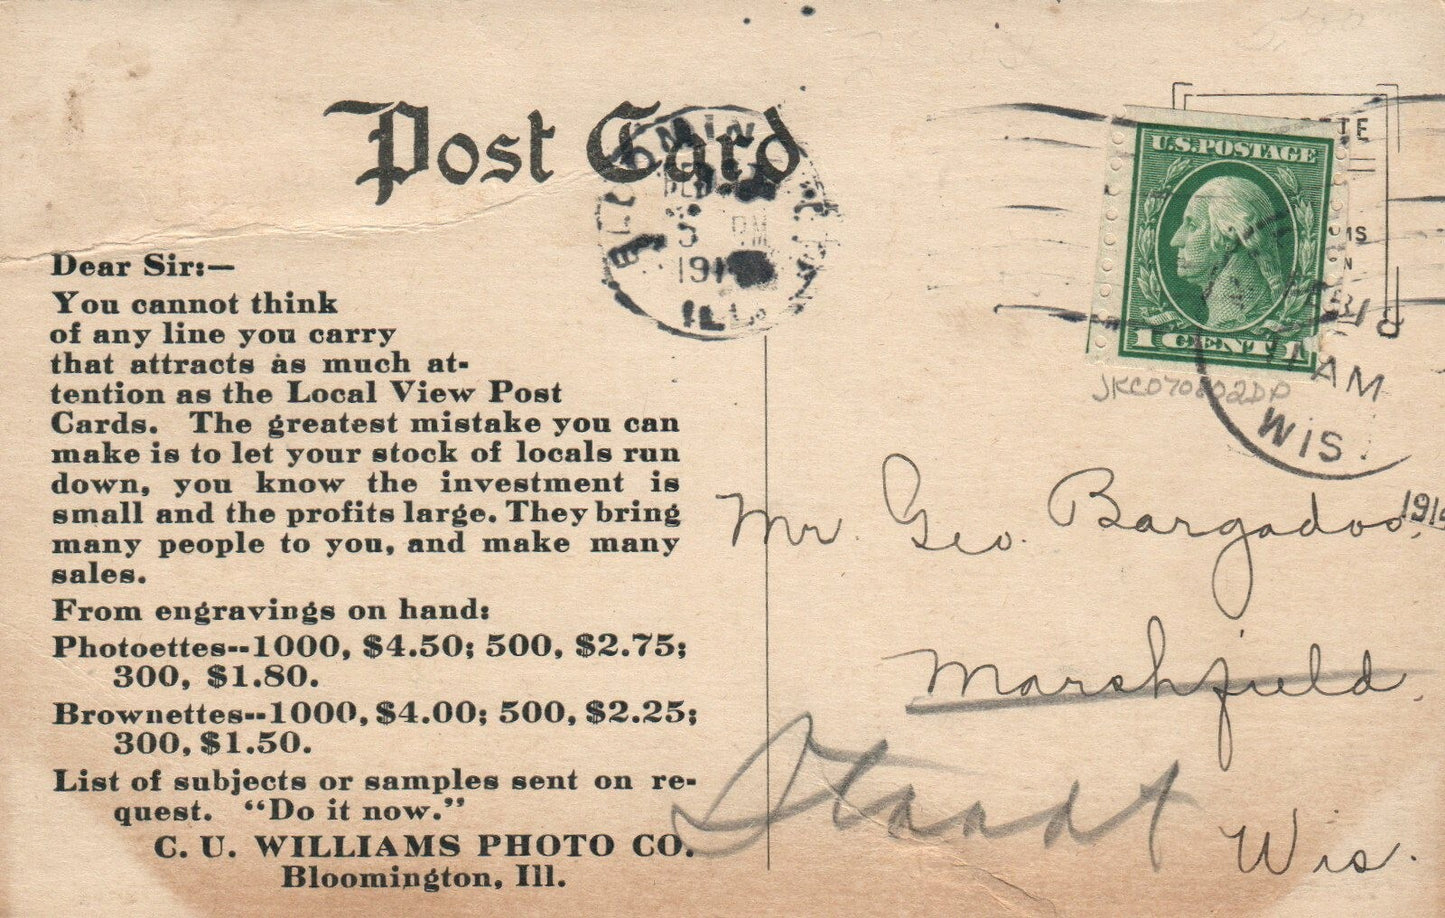 Post Card
Dear Sir:—
You cannot think
of any line you carry
that attracts as much at-
tention as the Local View Post
Cards. The greatest mistake you can
make is to let your stock of locals run
down, you know the investment is
small and the profits large. They bring
many people to you, and make many
sales.
From engravings on hand:
Photoettes--1000, $4.50; 500, $2.75;
300, $1.80.
Brownettes--1000, $4.00; 500, $2.25;
300, $1.50.
List of subjects or samples sent on re-
quest. "Do it now."
C. U. WILLIAMS PHOTO CO.
Bloomington, Ill.
PM
ILL.
U.S. POSTAGE
1 CENT 1
AM
WIS.
JKC070802DP
Mr. Geo. Bargadoo,
Marshfield,
Wis.